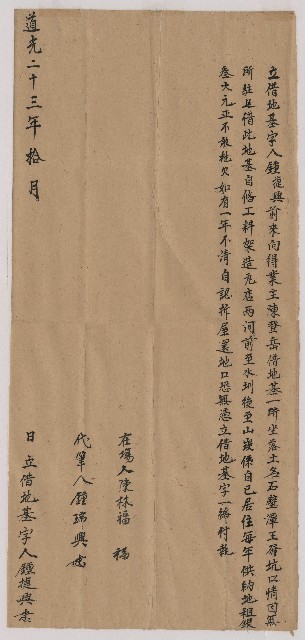 立借地基字人鍾復興前來向得業主陳登岳借地基一所坐落土名石壁潭王爺坑口情因無
所駐足借此地基自俻工料架造瓦店両间前至水圳後至山崁係自己居住每年供納地租銀
叁大元正不敢乾欠如有一年不清自認拆屋還地口恐無憑立借地基字一紙付執
在場人陳林福
代筆人鍾瑞興
道光二十三年拾月 日立借地基字人鍾復興